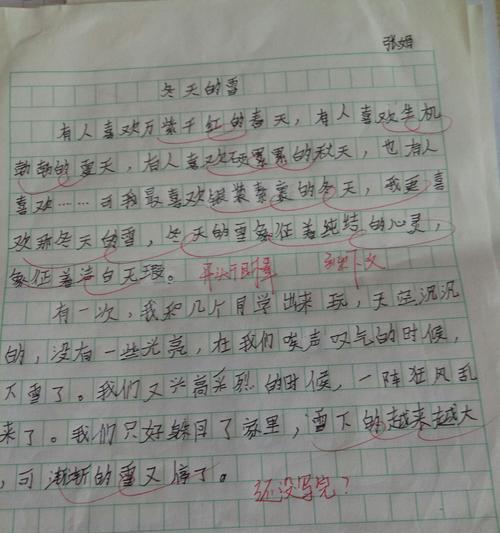 张婧
冬天的雪
有人喜欢万紫千红的春天，有人喜欢生机
勃勃的夏天，有人喜欢硕果累累的秋天，也有人
喜欢……可我最喜欢银装素裹的冬天，我更喜
欢那冬天的雪，冬天的雪象征着纯结的心灵，
象征着洁白无瑕。 开头开门见山
有一次，我和几个同学出来玩，天空沉沉
的，没有一些光亮，在我们唉声叹气的时候，
下雪了。我们又兴高采烈的时候，一阵狂风乱
来了。我们只好躲回了家里，雪下的越来越大
，可渐渐的雪又停了。 还没写完？